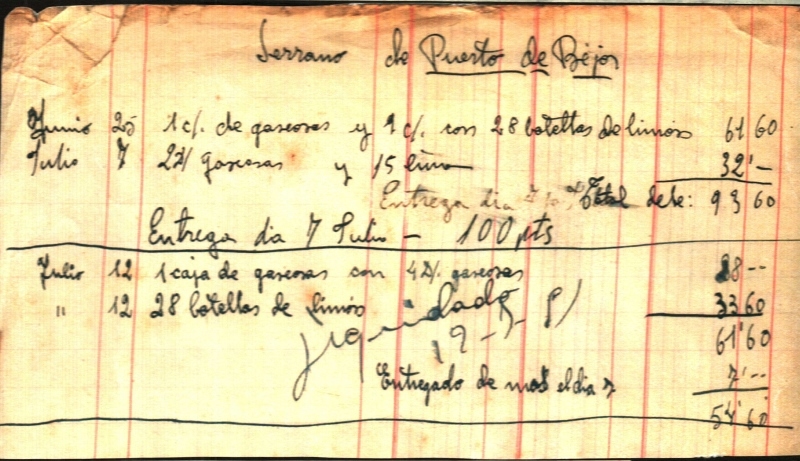 Serrano de Puerto de Béjar
Junio 25 1 c/. de gaseosas y 1 c/. con 28 botellas de limón 61 60
Julio 7 24/ gaseosas y 15 limon 32'—
Entrega dia Total debe: 93 60
Entrega dia 7 Julio — 100 pts
Julio 12 1 caja de gaseosas con 42/. gaseosas 28 --
" 12 28 botellas de limón 33 60
Liquidado 61'60
19-
Entregado de mas el dia 7 7'--
54'60